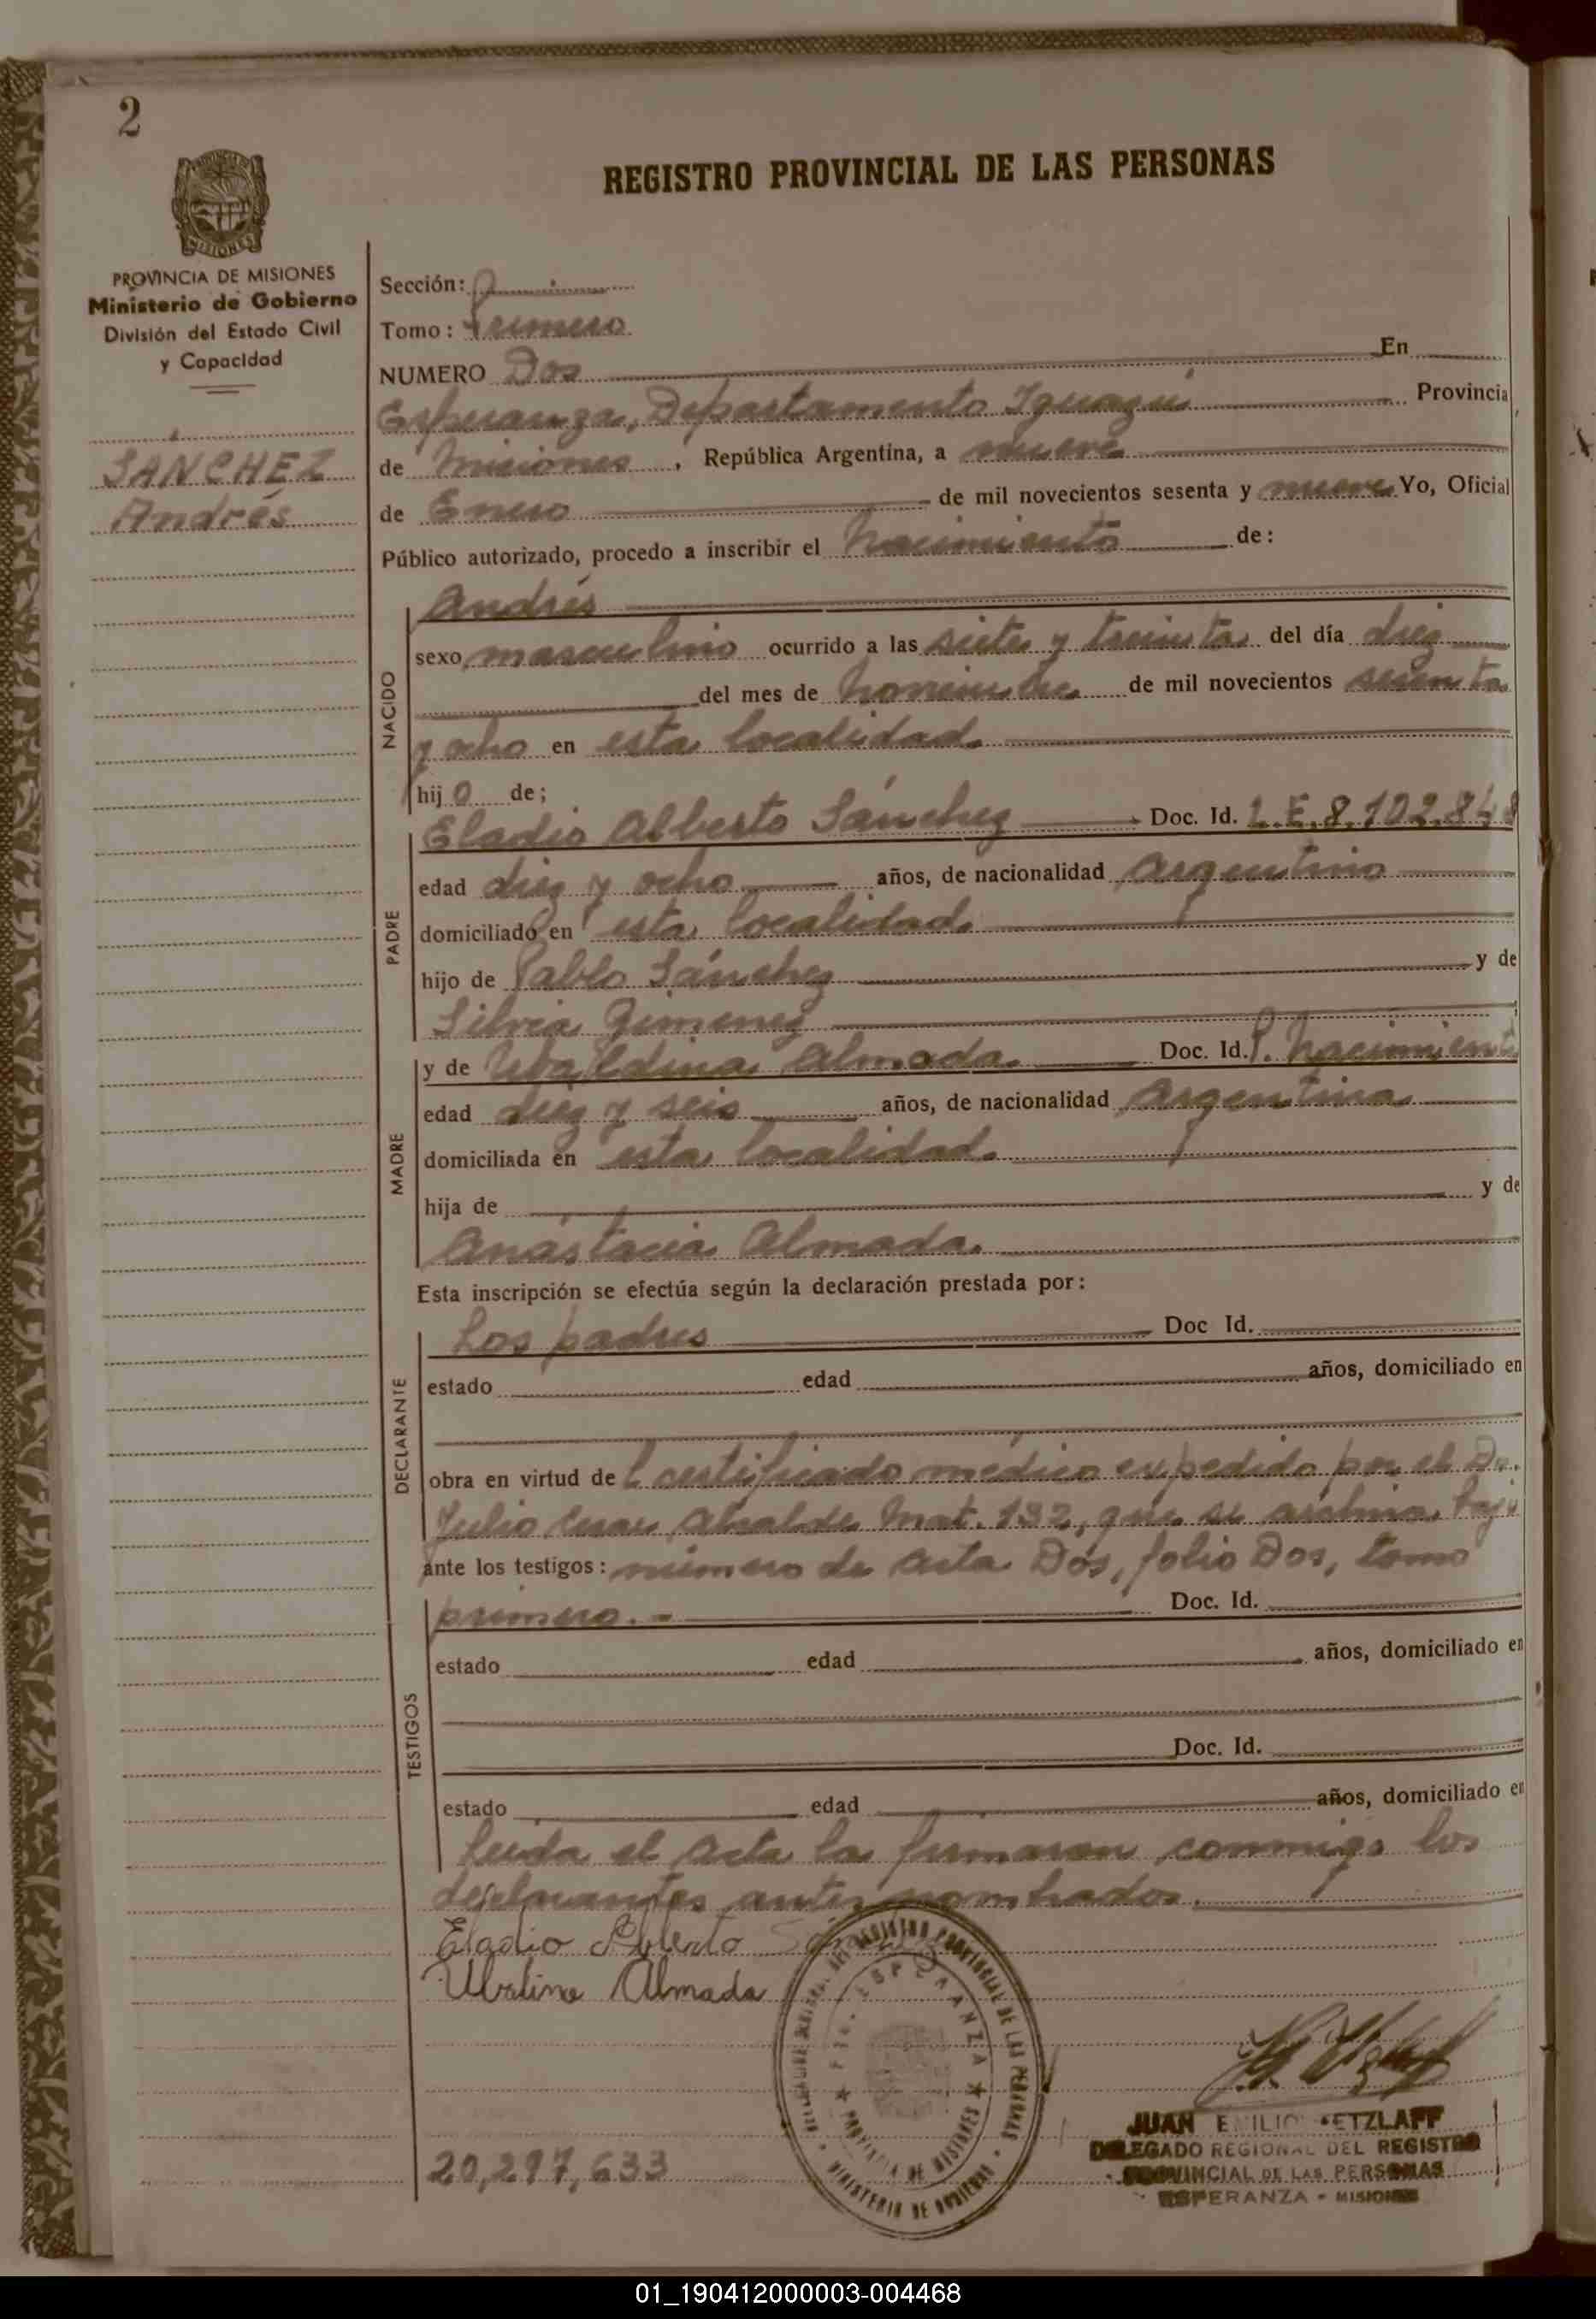 2
REGISTRO PROVINCIAL DE LAS PERSONAS
MISIONES
PROVINCIA DE MISIONES
Ministerio de Gobierno
División del Estado Civil
y Capacidad
SANCHEZ
Andrés
Sección:
Tomo: Primero
NUMERO Dos En
Esperanza, Departamento Iguazú Provincia
de Misiones, República Argentina, a nueve
de Enero de mil novecientos sesenta y nueve Yo, Oficial
Público autorizado, procedo a inscribir el Nacimiento de:
NACIDO
Andrés
sexo masculino ocurrido a las siete y treinta del día diez
del mes de Noviembre de mil novecientos sesenta
y ocho en esta localidad.
hijo de;
PADRE
Eladio Alberto Sánchez Doc. Id. L.E. 8.102.848
edad diez y ocho años, de nacionalidad Argentino
domiciliado en esta localidad.
hijo de Pablo Sánchez y de
Silvia Gimenez
MADRE
y de Ubaldina Almada Doc. Id. P. Nacimiento
edad diez y seis años, de nacionalidad Argentina
domiciliada en esta localidad.
hija de y de
Anastacia Almada.
Esta inscripción se efectúa según la declaración prestada por:
DECLARANTE
Los padres Doc Id.
estado edad años, domiciliado en
obra en virtud del certificado médico expedido por el Dr.
Julio Cesar Alcalde Mat. 132, que se archiva bajo
ante los testigos: número de acta Dos, folio Dos, tomo
TESTIGOS
primero.- Doc. Id.
estado edad años, domiciliado en
Doc. Id.
estado edad años, domiciliado en
Leida el acta la firmaron conmigo los
declarantes antes nombrados.
Eladio Alberto
Ubaline Almada
REGISTRO PROVINCIAL DE LAS PERSONAS
ESPERANZA
PROVINCIA DE MISIONES
MINISTERIO DE GOBIERNO
JUAN EMILIO
DELEGADO REGIONAL DEL REGISTRO
PROVINCIAL DE LAS PERSONAS
ESPERANZA - MISIONES
20,297,633
01_190412000003-004468